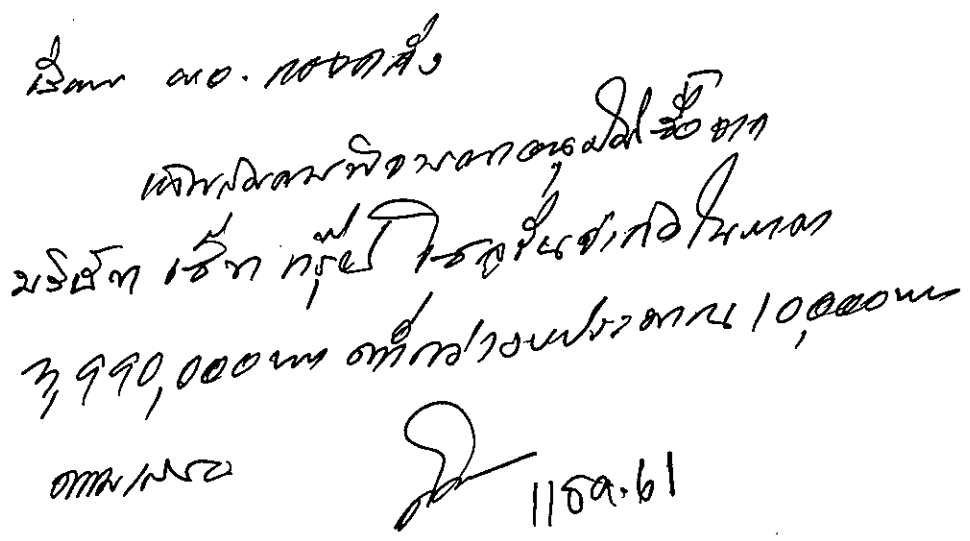 เรียน ผอ. กองคลัง
เห็นสมควรพิจารณาอนุมัติซื้อจาก
บริษัท เซ้าท กรุ๊ป โซลูชั่น จำกัด ในราคา
3,990,000 บาท ต่ำกว่างบประมาณ 10,000 บาท
ตามเสนอ
11 ธค. 61